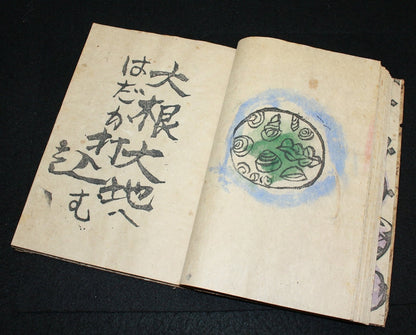 大根大地へ
はだか打込む